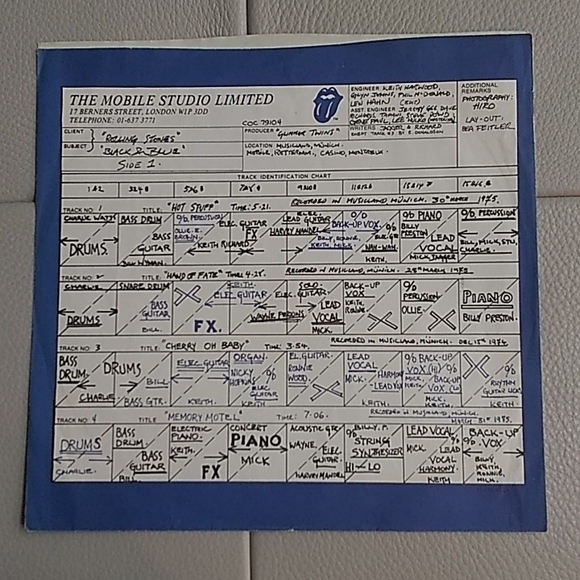 THE MOBILE STUDIO LIMITED
17 BERNERS STREET, LONDON W1P 3DD
TELEPHONE: 01-637-3771
COC 79104
CLIENT "ROLLING STONES"
SUBJECT "BLACK & BLUE"
SIDE 1.
ENGINEER KEITH HARWOOD,
GLYN JOHNS, PHIL McDONALD,
LEW HAHN
PRODUCER "GLIMMER TWINS"
LOCATION MUSICLAND, MUNICH.
MOBILE, ROTTERDAM, CASINO, MONTREUX.
WRITERS JAGGER & RICHARD
ADDITIONAL
REMARKS
PHOTOGRAPHY:
HIRO
LAY-OUT:
BEA FEITLER
TRACK IDENTIFICATION CHART
TRACK NO. 1 TITLE: "HOT STUFF" TIME: 5.21. RECORDED IN MUSICLAND, MUNICH. 30TH MARCH 1975.
CHARLIE WATTS
DRUMS.
BASS DRUM
BASS
GUITAR
% PERCUSSION
OLLIE E.
BROWN
KEITH RICHARD
ELEC. GUITAR
FX
ELEC.
LEAD GUITAR
HARVEY MANDEL
BACK-UP VOX
WAH-WAH
KEITH.
% PIANO
BILLY
PRESTON
LEAD
VOCAL
MICK JAGGER
% PERCUSSION
BILL, MICK, STU,
CHARLIE.
TRACK NO. 2 TITLE: "HAND OF FATE" TIME: 4-25. RECORDED IN MUSICLAND, MUNICH. 25TH MARCH 1975.
CHARLIE
DRUMS
SNARE DRUM
BASS
GUITAR
BILL.
KEITH
ELEC GUITAR
FX.
SOLO.
ELEC. GUITAR
WAYNE PERKINS
LEAD
VOCAL
MICK
BACK-UP
VOX
KEITH,
RONNIE
%
PERCUSION
OLLIE
PIANO
BILLY PRESTON.
TRACK NO. 3 TITLE: "CHERRY OH BABY" TIME: 3.54. RECORDED IN MUSICLAND, MUNICH. DEC. 15TH 1974
BASS
DRUM
CHARLIE
DRUMS
BILL
BASS GTR.
ELEC GUITAR
KEITH.
ORGAN.
NICKY
HOPKINS
%
ELEC
GUITAR
KEITH
EL. GUITAR.
RONNIE
WOOD.
LEAD
VOCAL
MICK.
KEITH.
% BACK-UP
VOX (HI)
MICK. BACK-UP
VOX (LO)
MICK,
KEITH.
%
RHYTHM
GUITAR
KEITH.
TRACK NO. 4 TITLE: "MEMORY MOTEL" TIME: 7.06. RECORDED IN MUSICLAND, MUNICH.
MARCH 31ST 1975.
DRUMS
CHARLIE.
BASS
DRUM.
BASS
GUITAR
BILL
ELECTRIC
PIANO.
KEITH.
FX
CONCERT
PIANO
MICK
ACOUSTIC GTR
WAYNE.
ELEC
GUITAR.
HARVEY MANDEL
BILLY. P.
%
STRING
SYNTHESIZER
HI - LO
LEAD VOCAL
MICK
LEAD
VOCAL
HARMONY.
KEITH
BACK-UP
% VOX.
BILLY,
KEITH,
RONNIE,
MICK.